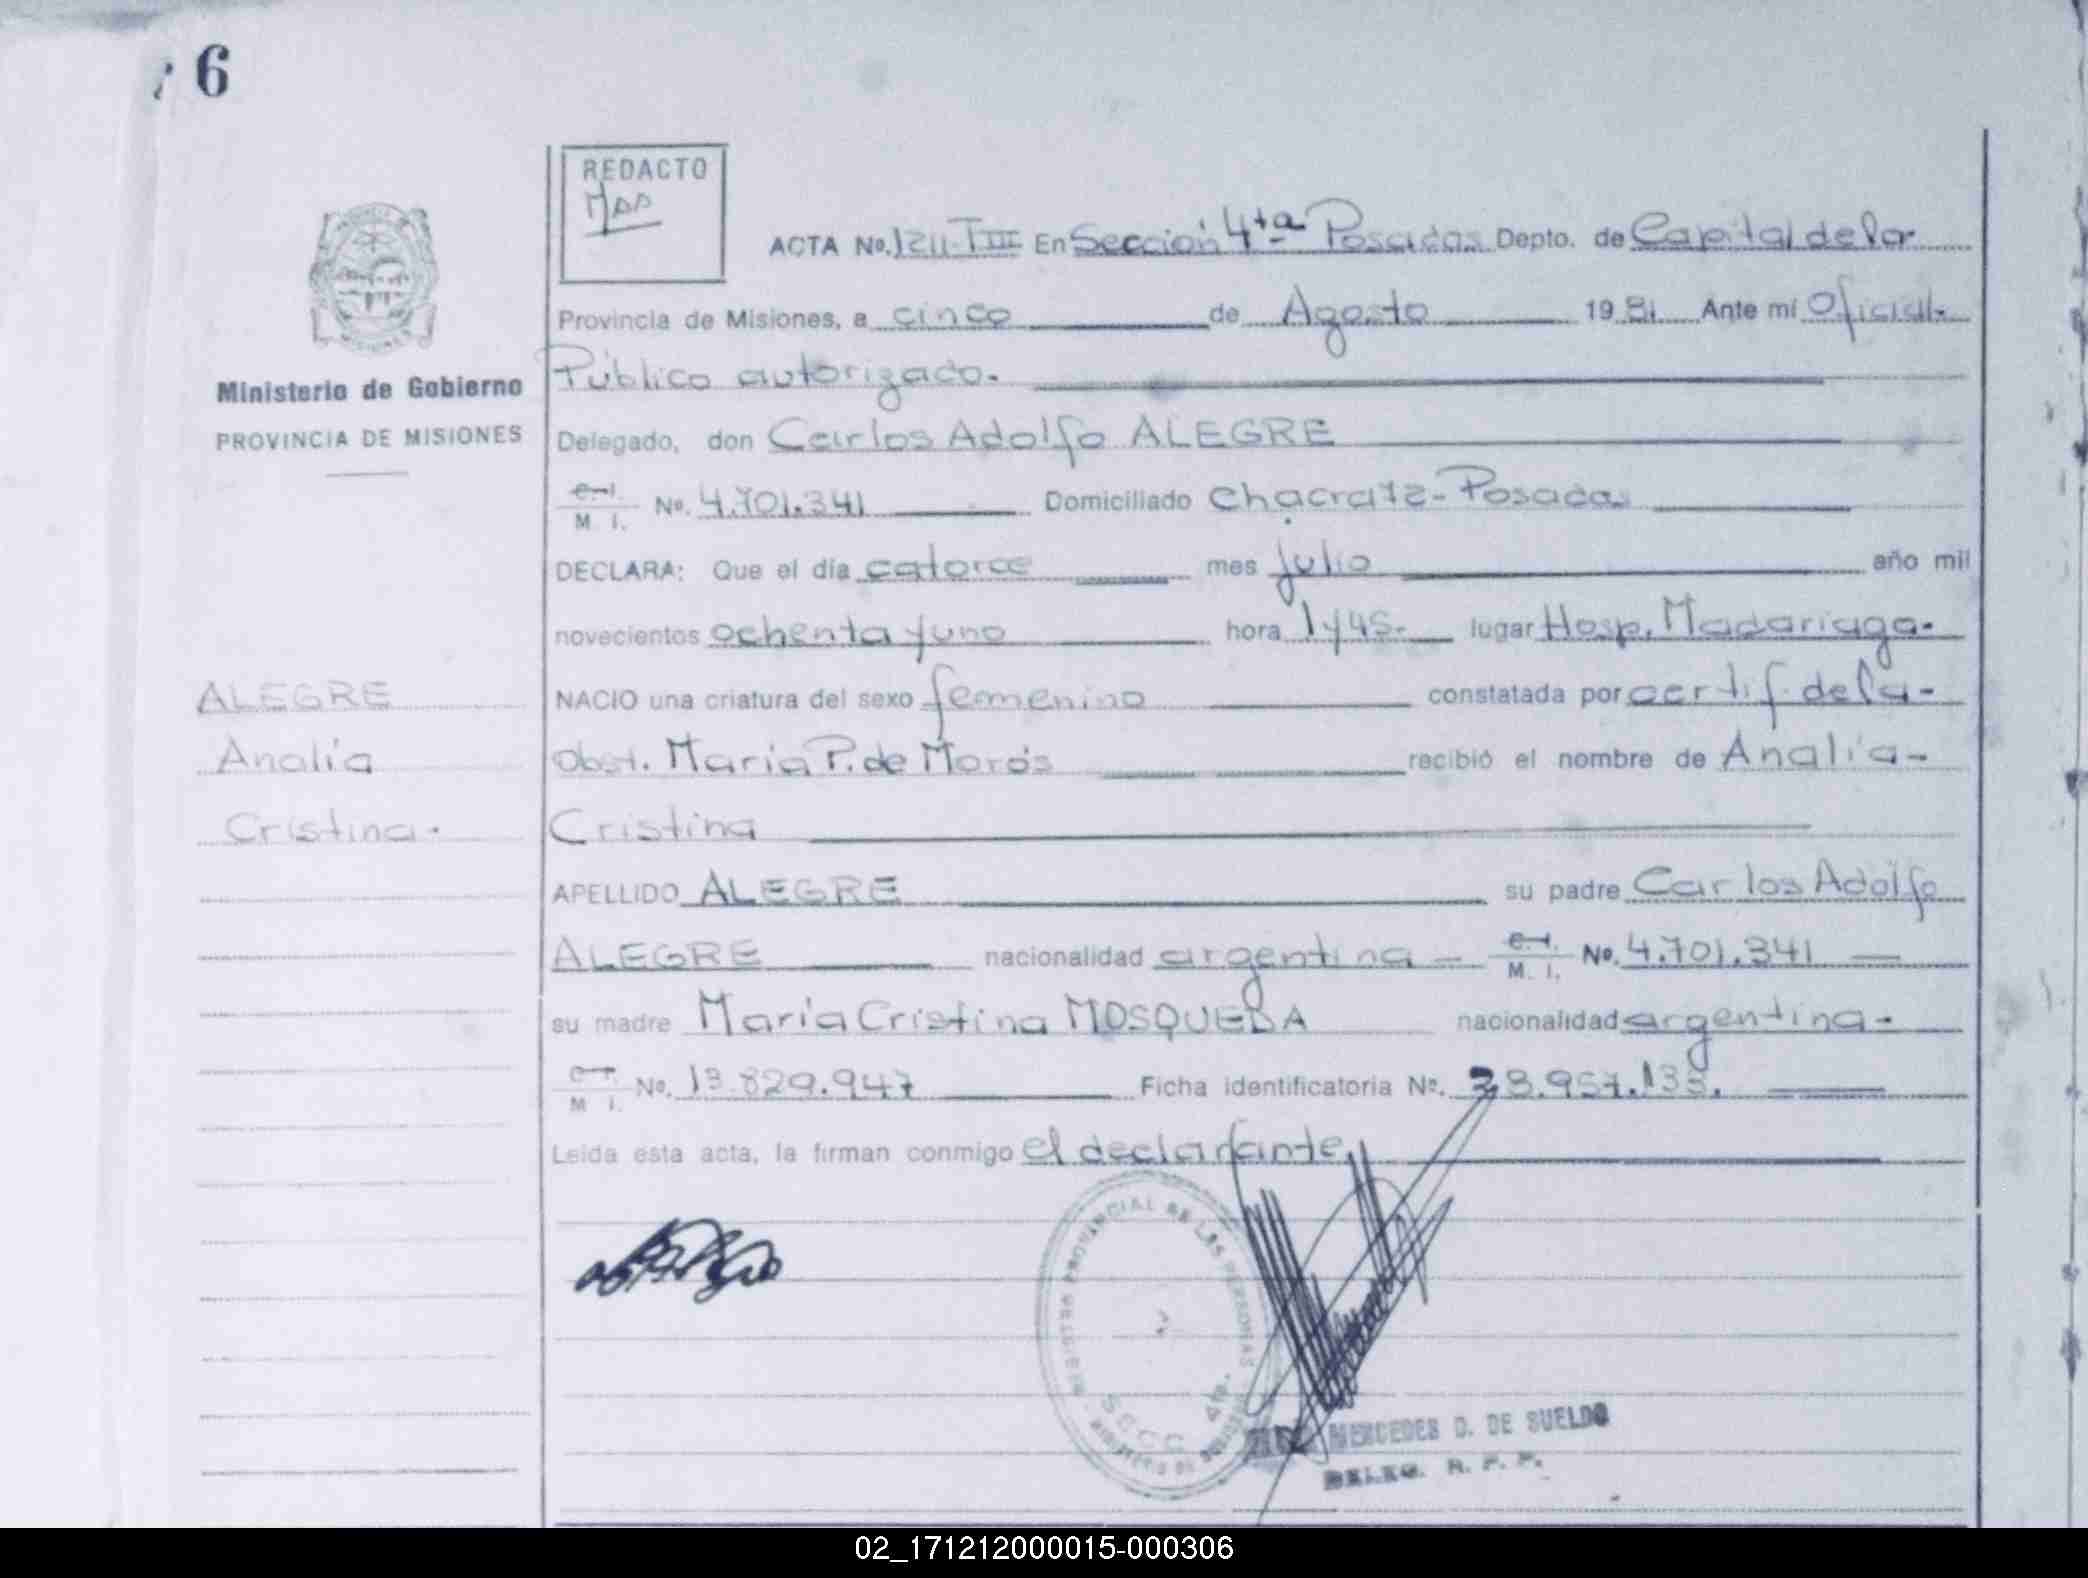 6
REDACTO
ACTA No. 1211-TIII En Sección 4ta Posadas Depto. de Capital de la
Provincia de Misiones, a cinco de Agosto 1981 Ante mí Oficial
Ministerio de Gobierno
Público autorizado.
PROVINCIA DE MISIONES
Delegado, don Carlos Adolfo ALEGRE
C.I. M. I. No. 4.701.341 Domiciliado Chacra 12-Posadas
DECLARA: Que el día catorce mes julio año mil
novecientos ochenta y uno hora 1y45- lugar Hosp. Madariaga-
ALEGRE
NACIO una criatura del sexo femenino constatada por certif. de la-
Analía
Obst. María P. de Morós recibió el nombre de Analía-
Cristina.
Cristina
APELLIDO ALEGRE su padre Carlos Adolfo
ALEGRE nacionalidad argentina - C.I. M. I. No. 4.701.341
su madre María Cristina MOSQUEDA nacionalidad argentina-
C.I. M I. No. 13.829.947 Ficha identificatoria No. 28.957.135.
Leída esta acta, la firman conmigo el declarante.
PROVINCIAL DE LAS PERSONAS
SECC 4ta.
MERCEDES D. DE SUELDO
DELEG. R. P. P.
02_171212000015-000306